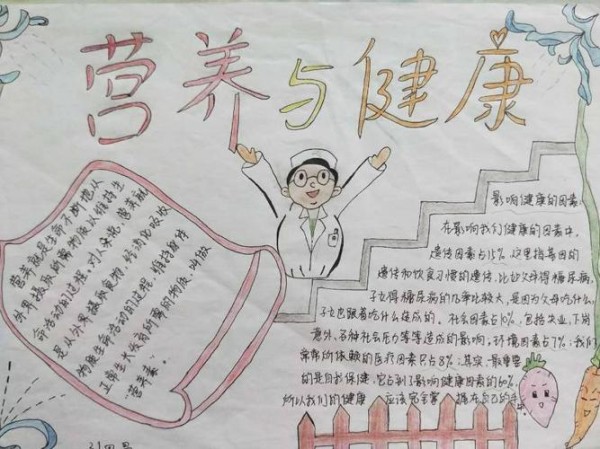 营养与健康
营养就是生命不断地从
外界摄取所需物质以维持生
命活动的过程。对人来说,营养就
是从外界摄取食物,经消化吸收
构建生命活动的过程。维持躯体
正常生长发育所需的物质,叫做
"营养素"。
影响健康的因素:
在影响我们健康的因素中,
遗传因素占15%,这里指基因的
遗传和饮食习惯的遗传,比如父母得糖尿病,
子女得糖尿病的几率比较大,是因为父母吃什么,
子女也跟着吃什么造成的。社会因素占10%,包括失业、下岗
意外、各种社会压力等等造成的影响。环境因素占7%;我们
常常所依赖的医疗因素只占8%;其实,最重要
的是自我保健,它占到了影响健康因素的60%,
所以我们的健康 应该完全掌 握在自己的手